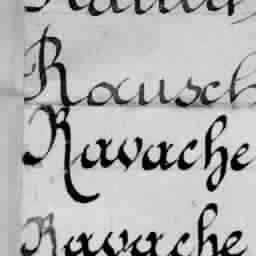 Rousch
Ravache
Ravache